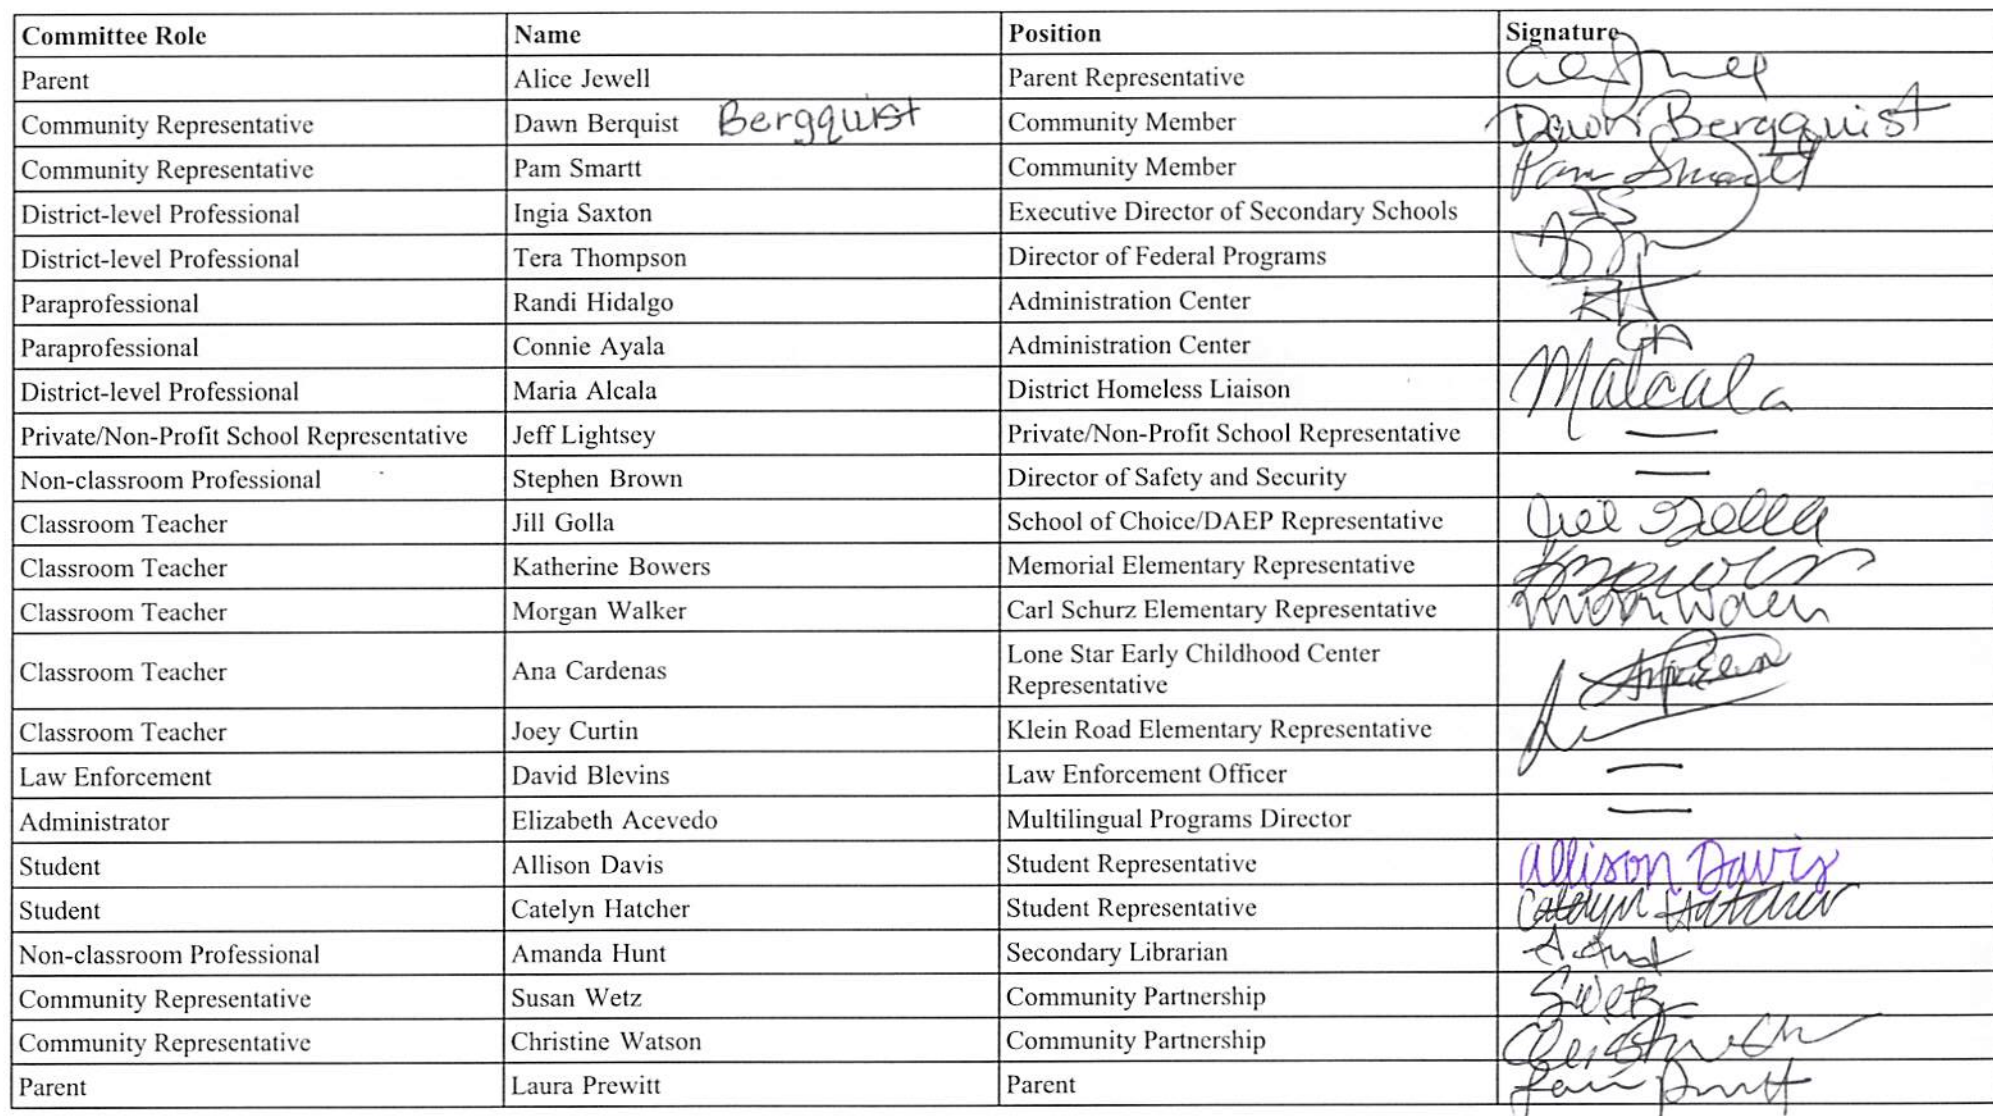 Committee Role Name Position Signature
Parent Alice Jewell Parent Representative
Community Representative Dawn Berquist Bergquist Community Member Dawn Bergquist
Community Representative Pam Smartt Community Member Pam Smartt
District-level Professional Ingia Saxton Executive Director of Secondary Schools IS
District-level Professional Tera Thompson Director of Federal Programs
Paraprofessional Randi Hidalgo Administration Center RH
Paraprofessional Connie Ayala Administration Center CA
District-level Professional Maria Alcala District Homeless Liaison MAlcala
Private/Non-Profit School Representative Jeff Lightsey Private/Non-Profit School Representative —
Non-classroom Professional Stephen Brown Director of Safety and Security —
Classroom Teacher Jill Golla School of Choice/DAEP Representative Jill Golla
Classroom Teacher Katherine Bowers Memorial Elementary Representative
Classroom Teacher Morgan Walker Carl Schurz Elementary Representative
Classroom Teacher Ana Cardenas Lone Star Early Childhood Center
Representative
Classroom Teacher Joey Curtin Klein Road Elementary Representative
Law Enforcement David Blevins Law Enforcement Officer —
Administrator Elizabeth Acevedo Multilingual Programs Director —
Student Allison Davis Student Representative Allison Davis
Student Catelyn Hatcher Student Representative Catelyn Hatcher
Non-classroom Professional Amanda Hunt Secondary Librarian
Community Representative Susan Wetz Community Partnership SWetz
Community Representative Christine Watson Community Partnership
Parent Laura Prewitt Parent